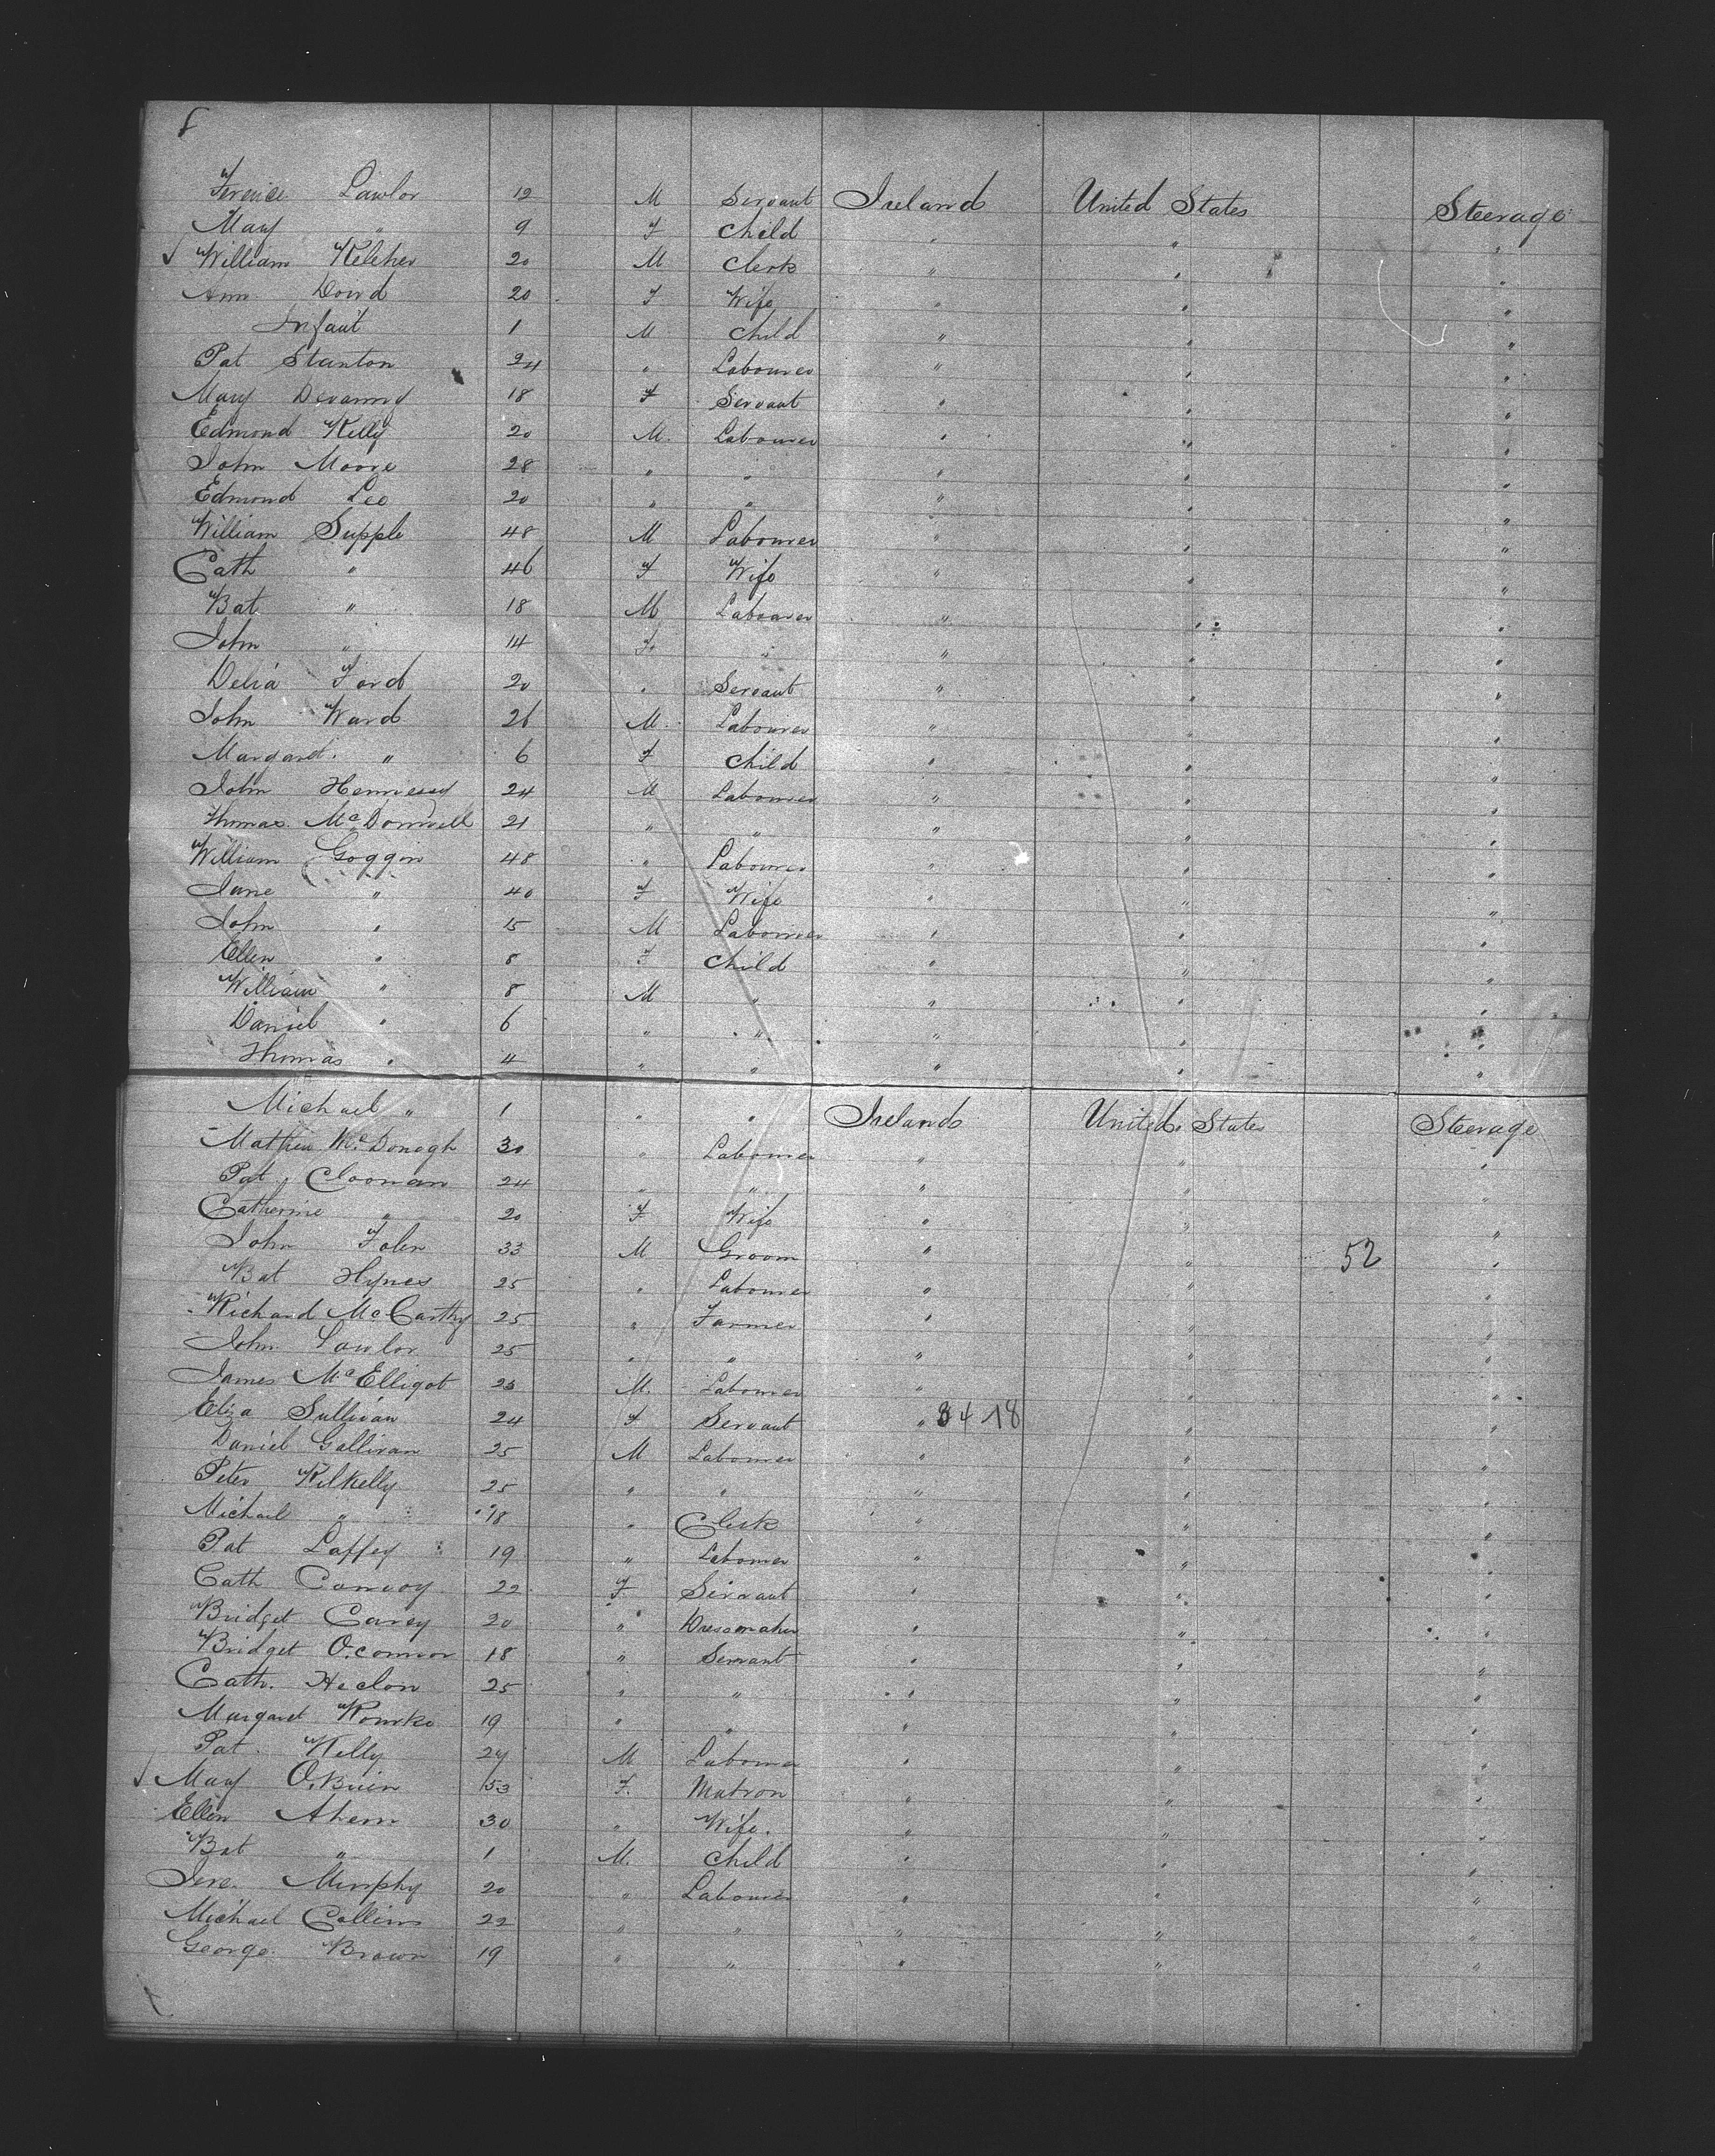 Terence Lawlor 12 M Servant Ireland United States Steerage
Mary " 9 F Child " " "
William Keleher 20 M Clerk " " "
Ann Dowd 20 F Wife " " "
Infant 1 M Child " " "
Pat Stanton 24 " Labourer " " "
Mary Devanny 18 F Servant " " "
Edmond Kelly 20 M. Labourer " " "
John Moore 28 " " " " "
Edmond Lee 20 " " " " "
William Supple 48 M Labourer " " "
Cath " 46 F Wife " " "
Bat " 18 M Labourer " " "
John " 14 F. " " " "
Delia Ford 20 " Servant " " "
John Ward 26 M. Labourer " " "
Margaret. " 6 F Child " " "
John Hennessy 24 M Labourer " " "
Thomas. McDonnell 21 " " " " "
William Goggin 48 " Labourer " " "
Jane " 40 F Wife " " "
John " 15 M Labourer " " "
Ellen " 8 F Child " " "
William " 8 M " " " "
Daniel " 6 " " " " "
Thomas " 4 " " " " "
Michael " 1 " " Ireland United States Steerage
Mathew McDonogh 30 " Labourer " " "
Pat Cloonan 24 " " " " "
Catherine " 20 F Wife " " "
John Folen 33 M Groom " " 52 "
Bat Hynes 25 " Labourer " " "
Richard McCarthy 25 " Farmer " " "
John Lawlor 25 " " " " "
James McElligot 25 M. Labourer " " "
Eliza Sullivan 24 F Servant " 8418 " "
Daniel Gallivan 25 M Labourer " " "
Peter Kilkelly 25 " " " " "
Michael " 18 " Clerk " " "
Pat Laffey 19 " Labourer " " "
Cath Conroy 22 F Servant " " "
Bridget Carey 20 " Dressmaker " " "
Bridget O.connor 18 " Servant " " "
Cath. Healon 25 " " " " "
Margaret Rourke 19 " " " " "
Pat. Kelly 24 M Labourer " " "
Mary O.Brien 53 F. Matron " " "
Ellen Ahern 30 " Wife. " " "
Bat " 1 M. Child " " "
Jere. Murphy 20 " Labourer " " "
Michael Collins 22 " " " " "
George. Brown 19 " " " " "